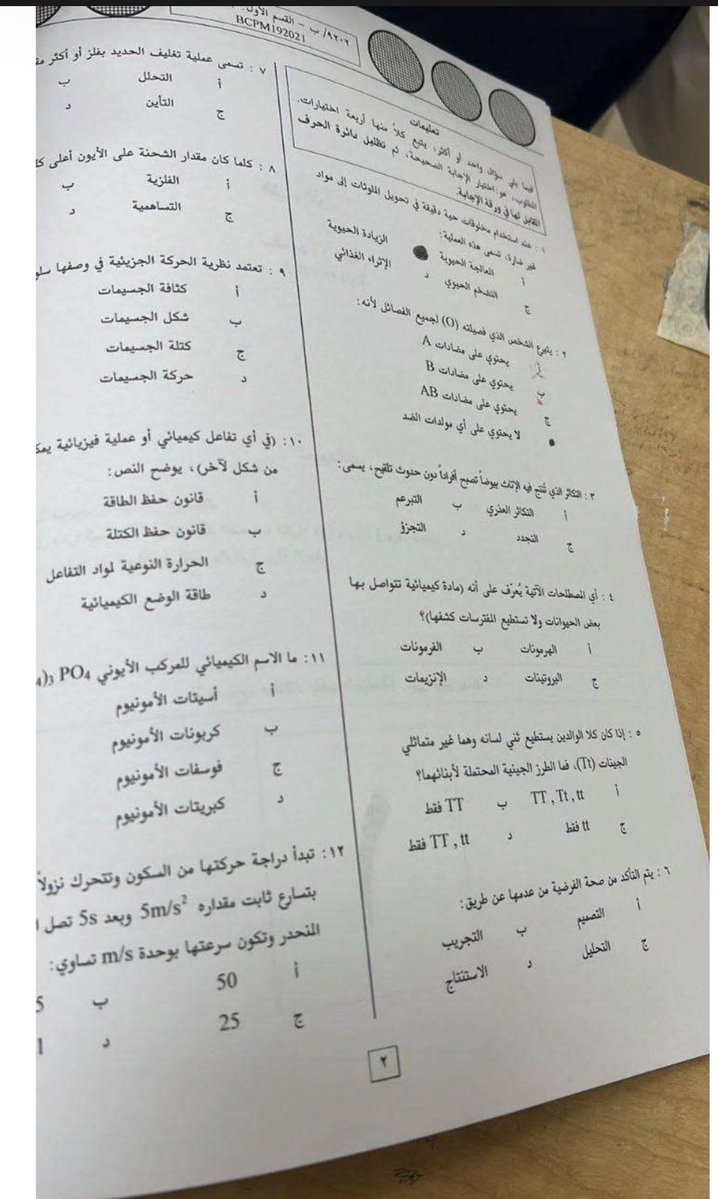 ٩٢٠٢/ ب – القسم الأول
BCPM192021
تعليمات
فيما يلي سؤال واحد أو أكثر، يتبع كلاً منها أربعة اختيارات.
المطلوب، هو: اختيار الإجابة الصحيحة، ثم تظليل دائرة الحرف
المقابل لها في ورقة الإجابة.
١ : عند استخدام مخلوقات حية دقيقة في تحويل الملوثات إلى مواد
غير ضارة، تسمى هذه العملية:
أ المعالجة الحيوية الزيادة الحيوية
ج التضخم الحيوي د الإثراء الغذائي
٢ : يتبرع الشخص الذي فصيلته (O) لجميع الفصائل لأنه:
أ يحتوي على مضادات A
ب يحتوي على مضادات B
ج يحتوي على مضادات AB
لا يحتوي على أي مولدات الضد
٣ : التكاثر الذي تُنتج فيه الإناث بيوضاً تصبح أفراداً دون حدوث تلقيح، يسمى:
أ التكاثر العذري ب التبرعم
ج التجدد د التجزؤ
٤ : أي المصطلحات الآتية يُعرّف على أنه (مادة كيميائية تتواصل بها
بعض الحيوانات ولا تستطيع المفترسات كشفها)؟
أ الهرمونات ب الفرمونات
ج البروتينات د الإنزيمات
٥ : إذا كان كلا الوالدين يستطيع ثني لسانه وهما غير متماثلي
الجينات (Tt)، فما الطرز الجينية المحتملة لأبنائهما؟
أ TT , Tt , tt ب TT فقط
ج tt فقط د TT , tt فقط
٦ : يتم التأكد من صحة الفرضية من عدمها عن طريق:
أ التصميم ب التجريب
ج التحليل د الاستنتاج
٧ : تسمى عملية تغليف الحديد بفلز أو أكثر
أ التحلل ب
ج التأين د
٨ : كلما كان مقدار الشحنة على الأيون أعلى
أ الفلزية ب
ج التساهمية د
٩ : تعتمد نظرية الحركة الجزيئية في وصفها
أ كثافة الجسيمات
ب شكل الجسيمات
ج كتلة الجسيمات
د حركة الجسيمات
١٠: (في أي تفاعل كيميائي أو عملية فيزيائية
من شكل لآخر)، يوضح النص:
أ قانون حفظ الطاقة
ب قانون حفظ الكتلة
ج الحرارة النوعية لمواد التفاعل
د طاقة الوضع الكيميائية
١١: ما الاسم الكيميائي للمركب الأيوني 4)3 PO4
أ أسيتات الأمونيوم
ب كربونات الأمونيوم
ج فوسفات الأمونيوم
د كبريتات الأمونيوم
١٢: تبدأ دراجة حركتها من السكون وتتحرك نزولاً
بتسارع ثابت مقداره 5m/s² وبعد 5s تصل
المنحدر وتكون سرعتها بوحدة m/s تساوي:
أ 50 ب 5
ج 25 د 1
٢